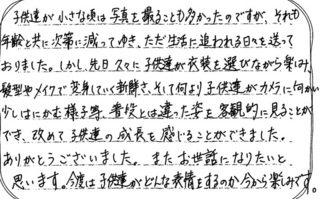 子供達が小さな頃は写真を撮ることも多かったのですが、それも
年齢と共に次第に減ってゆき、ただ生活に追われる日々を送って
おりました。しかし、先日久々に子供達が衣装を選びながら楽しみ、
髪型やメイクで変身していく新鮮さ、そして何より子供達がカメラに向かい
少しはにかむ様子等、普段とは違った姿を客観的に見ることが
でき、改めて子供達の成長を感じることができました。
ありがとうございました。またお世話になりたいと
思います。今度は子供達がどんな表情をするのか今から楽しみです。